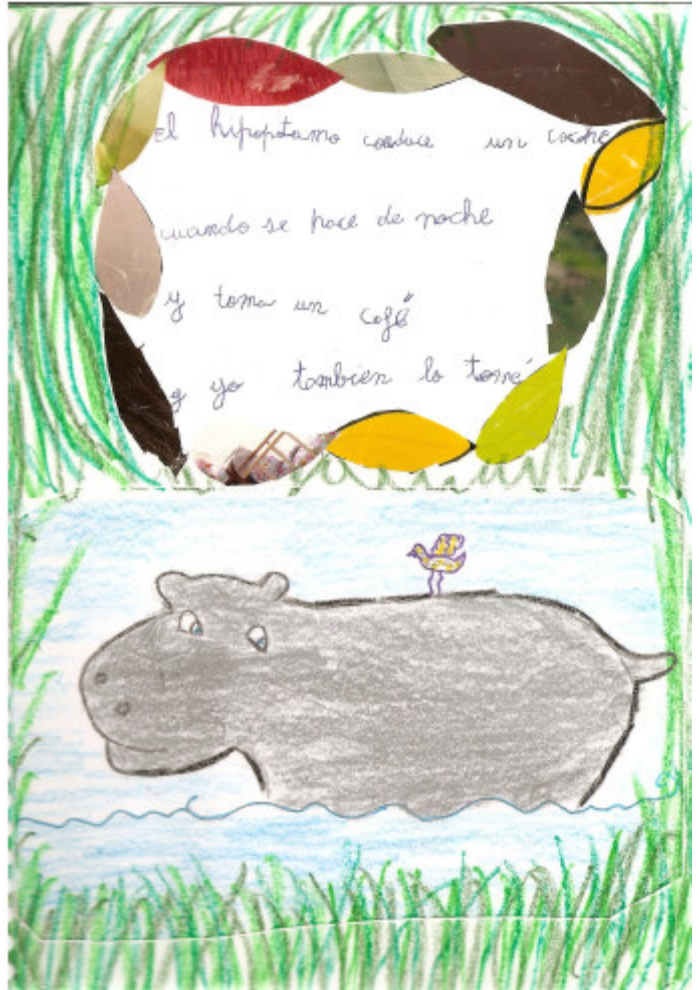 el hipopotamo conduce un coche
cuando se hace de noche
y toma un café
y yo tambien lo tomé